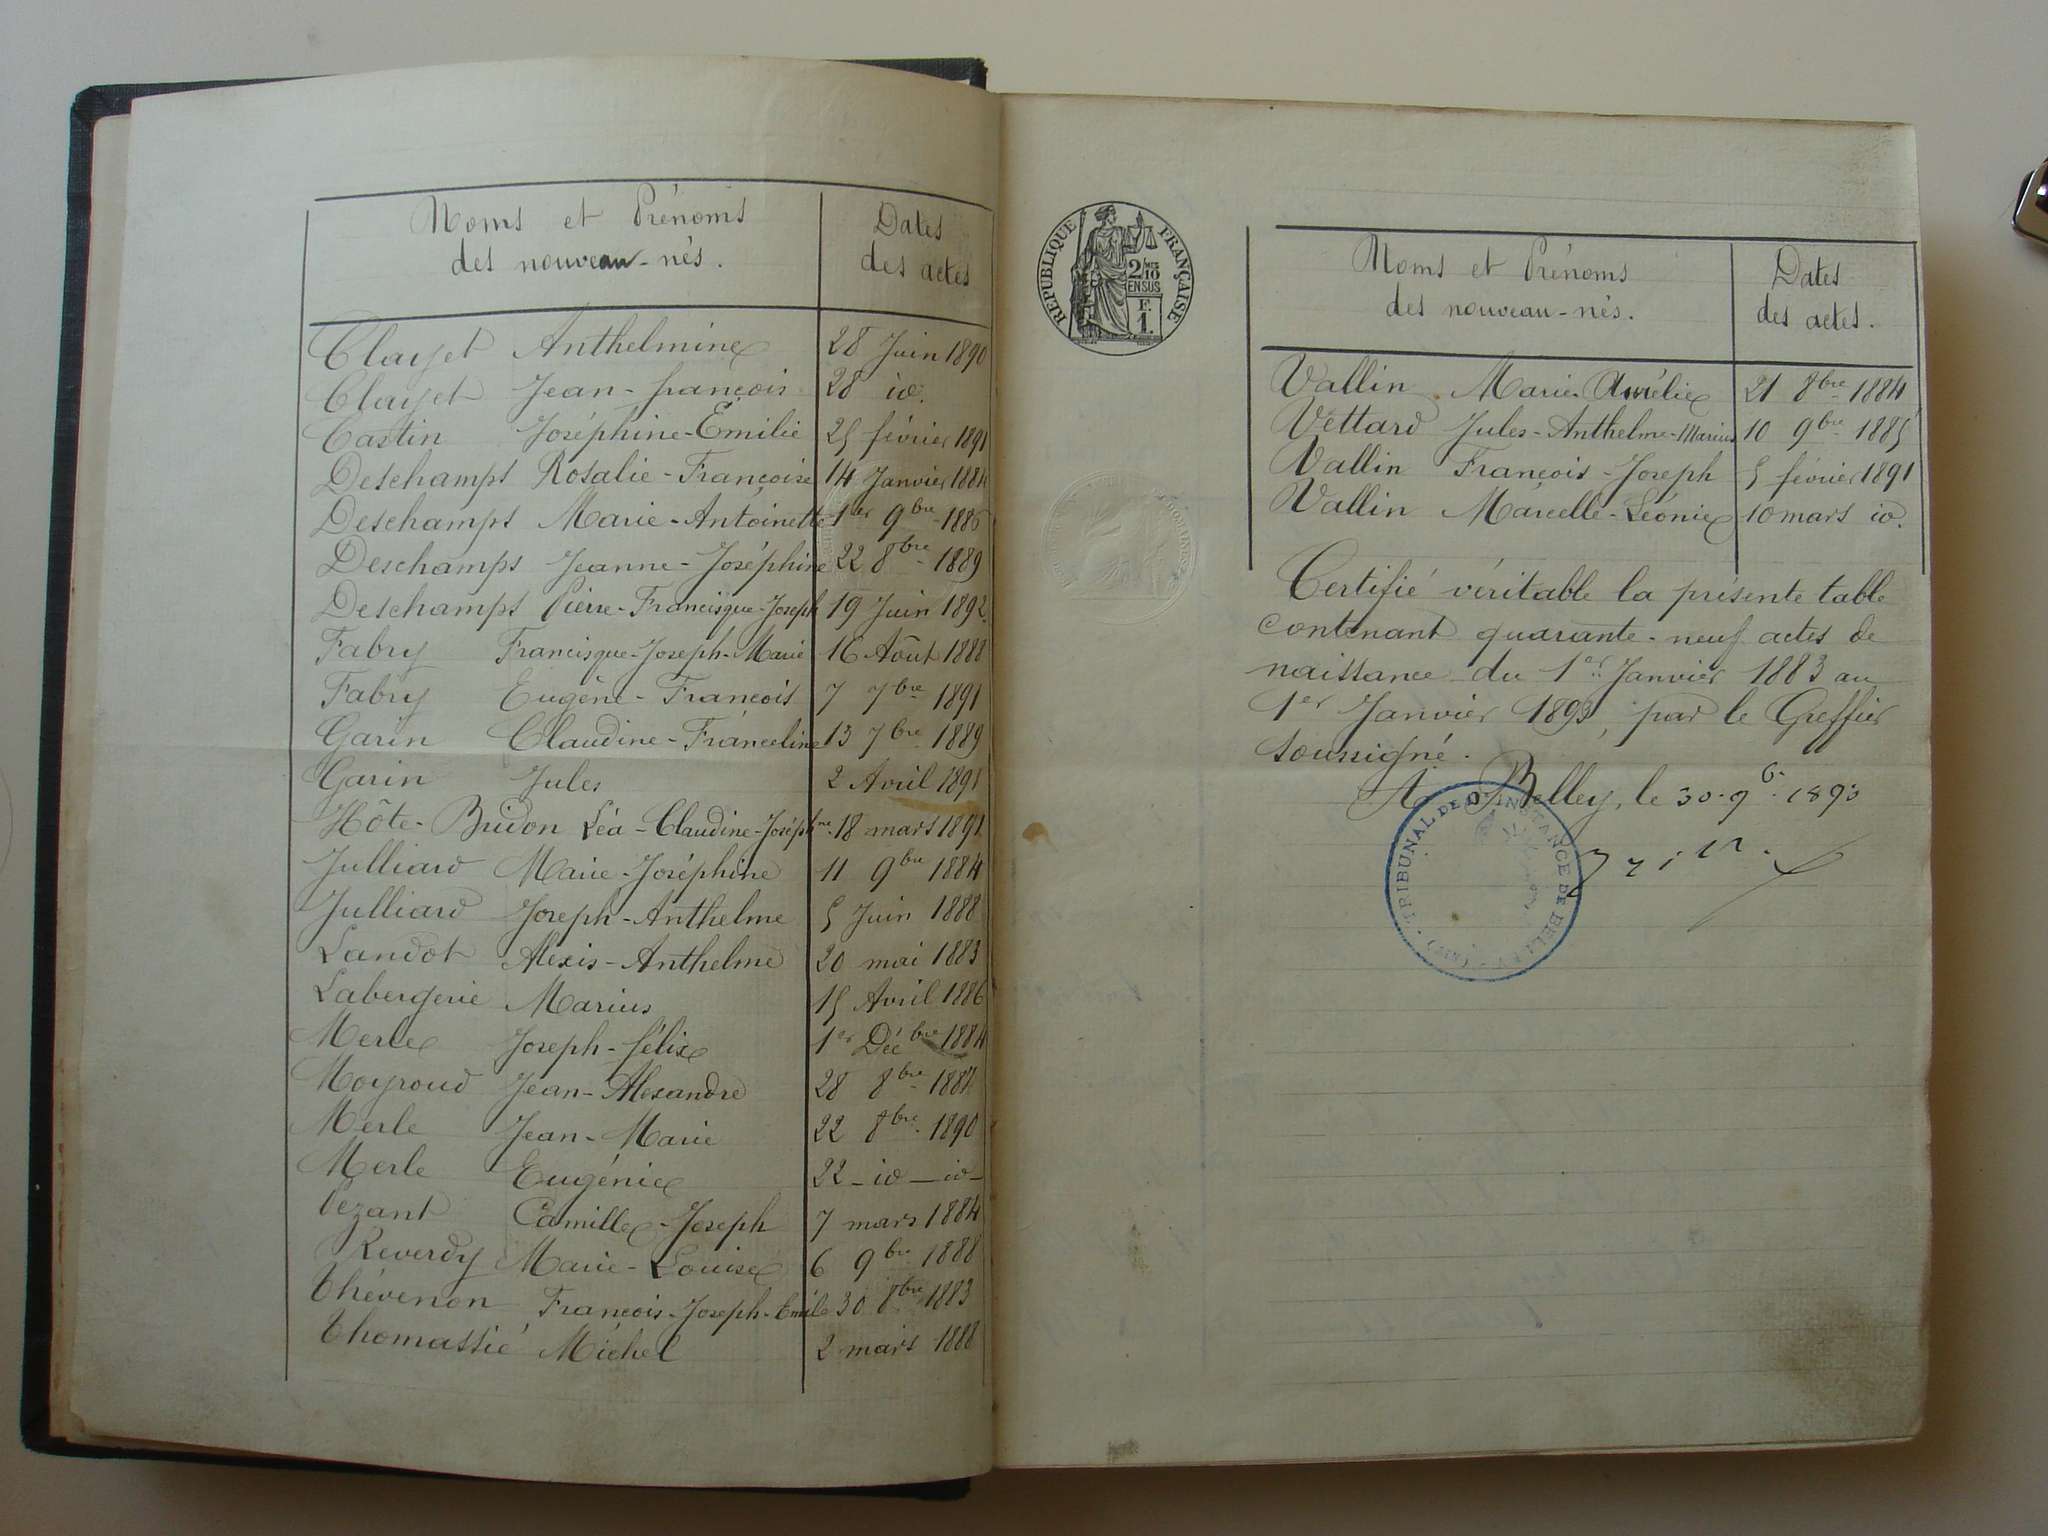 Noms et Prénoms
des nouveau-nés.
Dates
des actes
Clayet Anthelmine 28 Juin 1890
Clayet Jean-françois 28 id.
Castin Joséphine-Émilie 25 février 1891
Deschamps Rosalie-Françoise 14 Janvier 1884
Deschamps Marie-Antoinette 1er 9bre 1886
Deschamps Jeanne-Joséphine 22 8bre 1889
Deschamps Pierre-Francisque-Joseph 19 Juin 1892.
Fabry Francisque-Joseph-Marie 16 Août 1888
Fabry Eugène-François 7 7bre 1891
Garin Claudine-Franceline 13 7bre 1889
Garin Jules 2 Avril 1891
Hôte-Bridon Léa-Claudine-Joséphne 18 mars 1891
Julliard Marie-Joséphine 11 9bre 1884
Julliard Joseph-Anthelme 5 Juin 1888
Landot Alexis-Anthelme 20 mai 1883
Labergerie Marius 15 Avril 1886
Merle Joseph-félix 1er Décbre 1884
Moyroud Jean-Alexandre 28 8bre 1887
Merle Jean-Marie 22 8bre 1890
Merle Eugénie 22 - id - id -
Pezant Camille-Joseph 7 mars 1884
Reverdy Marie-Louise 6 9bre 1888
Thévenon François-Joseph-Emile 30 8bre 1883
Thomassié Michel 2 mars 1888
RÉPUBLIQUE FRANÇAISE
2/10MES
EN SUS
F.
1.
Noms et Prénoms
des nouveau-nés.
Dates
des actes.
Vallin Marie-Aurélie 21 8bre 1884
Vettard Jules-Anthelme-Marius 10 9bre 1885
Vallin François-Joseph 5 février 1891
Vallin Marcelle-Léonie 10 mars id.
Certifié véritable la présente table
contenant quarante-neuf actes de
naissance du 1er Janvier 1883 au
1er Janvier 1893, par le Greffier
soussigné.
A Belley, le 30 9b. 1893
TRIBUNAL DE 1RE INSTANCE DE BELLEY (AIN)